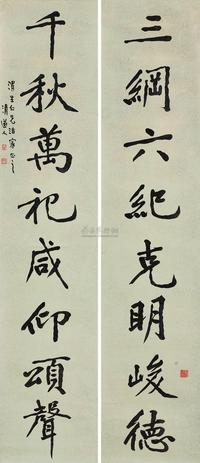 三綱六紀克明峻德
千秋萬祀咸仰頌聲
清道人